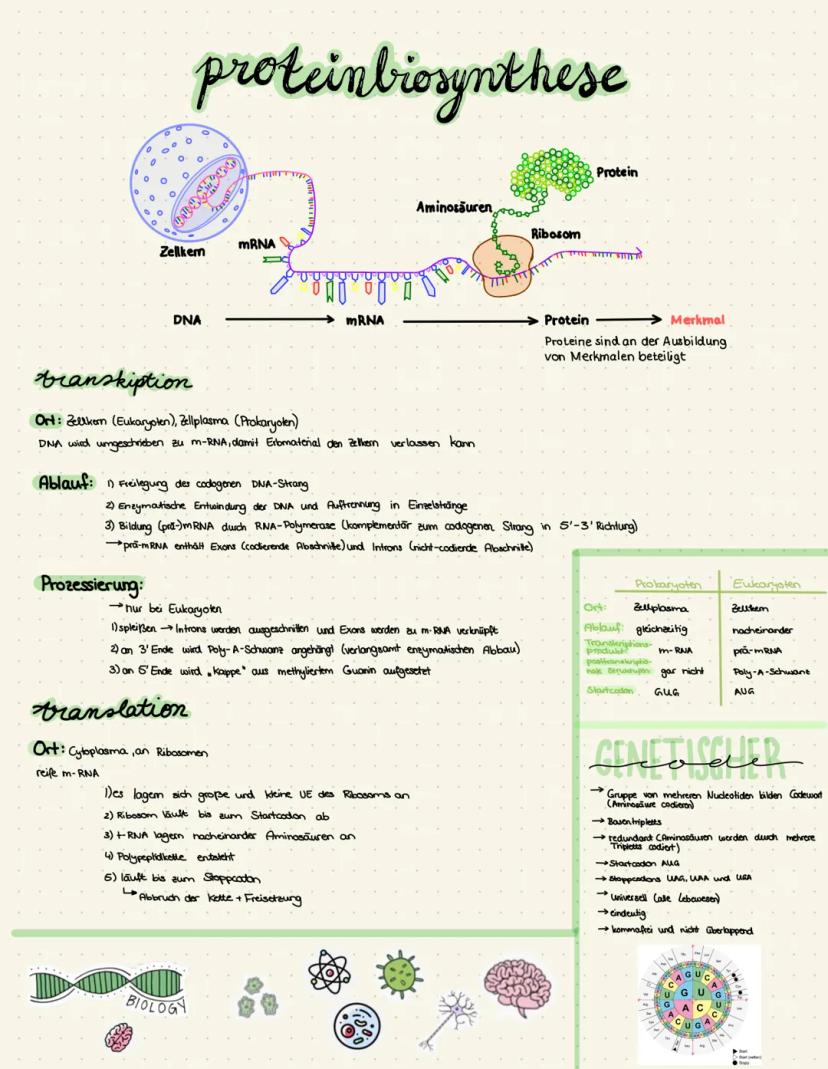 proteinbiosynthese
Protein
Aminosäuren
Ribosom
mRNA
Zellkern
DNA → mRNA → Protein → Merkmal
Proteine sind an der Ausbildung
von Merkmalen beteiligt
transkiption
Ort: Zellkern (Eukaryoten), Zellplasma (Prokaryoten)
DNA wird umgeschrieben zu m-RNA, damit Erbmaterial den Zellkern verlassen kann
Ablauf: 1) Freilegung des codogenen DNA-Strang
2) Enzymatische Entwindung der DNA und Auftrennung in Einzelstränge
3) Bildung (prä-)mRNA durch RNA-Polymerase (komplementär zum codogenen Strang in 5'-3' Richtung)
→ prä-mRNA enthält Exons (codierende Abschnitte) und Introns (nicht-codierende Abschnitte)
Prozessierung:
→ nur bei Eukaryoten
1) spleißen → Introns werden ausgeschnitten und Exons werden zu m-RNA verknüpft
2) an 3' Ende wird Poly-A-Schwanz angehängt (verlangsamt enzymatischen Abbau)
3) an 5' Ende wird „Kappe" aus methyliertem Guanin aufgesetzt
translation
Ort: Cytoplasma, an Ribosomen
reife m-RNA
1) es lagern sich große und kleine UE des Ribosoms an
2) Ribosom läuft bis zum Startcodon ab
3) t-RNA lagern nacheinander Aminosäuren an
4) Polypeptidkette entsteht
5) läuft bis zum Stoppcodon
↳ Abbruch der Kette + Freisetzung
Prokaryoten Eukaryoten
Ort: Zellplasma Zellkern
Ablauf: gleichzeitig nacheinander
Transkriptions-
produkt: m-RNA prä-mRNA
posttranskriptio-
nale Strukturen: gar nicht Poly-A-Schwanz
Startcodon GUG AUG
GENETISCHER
code
→ Gruppe von mehreren Nucleotiden bilden Codewort
(Aminosäure codieren)
→ Basentripletts
→ redundant (Aminosäuren werden durch mehrere
Tripletts codiert)
→ Startcodon AUG
→ Stoppcodons UAG, UAA und UGA
→ Universell (alle Lebewesen)
→ eindeutig
→ kommafrei und nicht überlappend
BIOLOGY